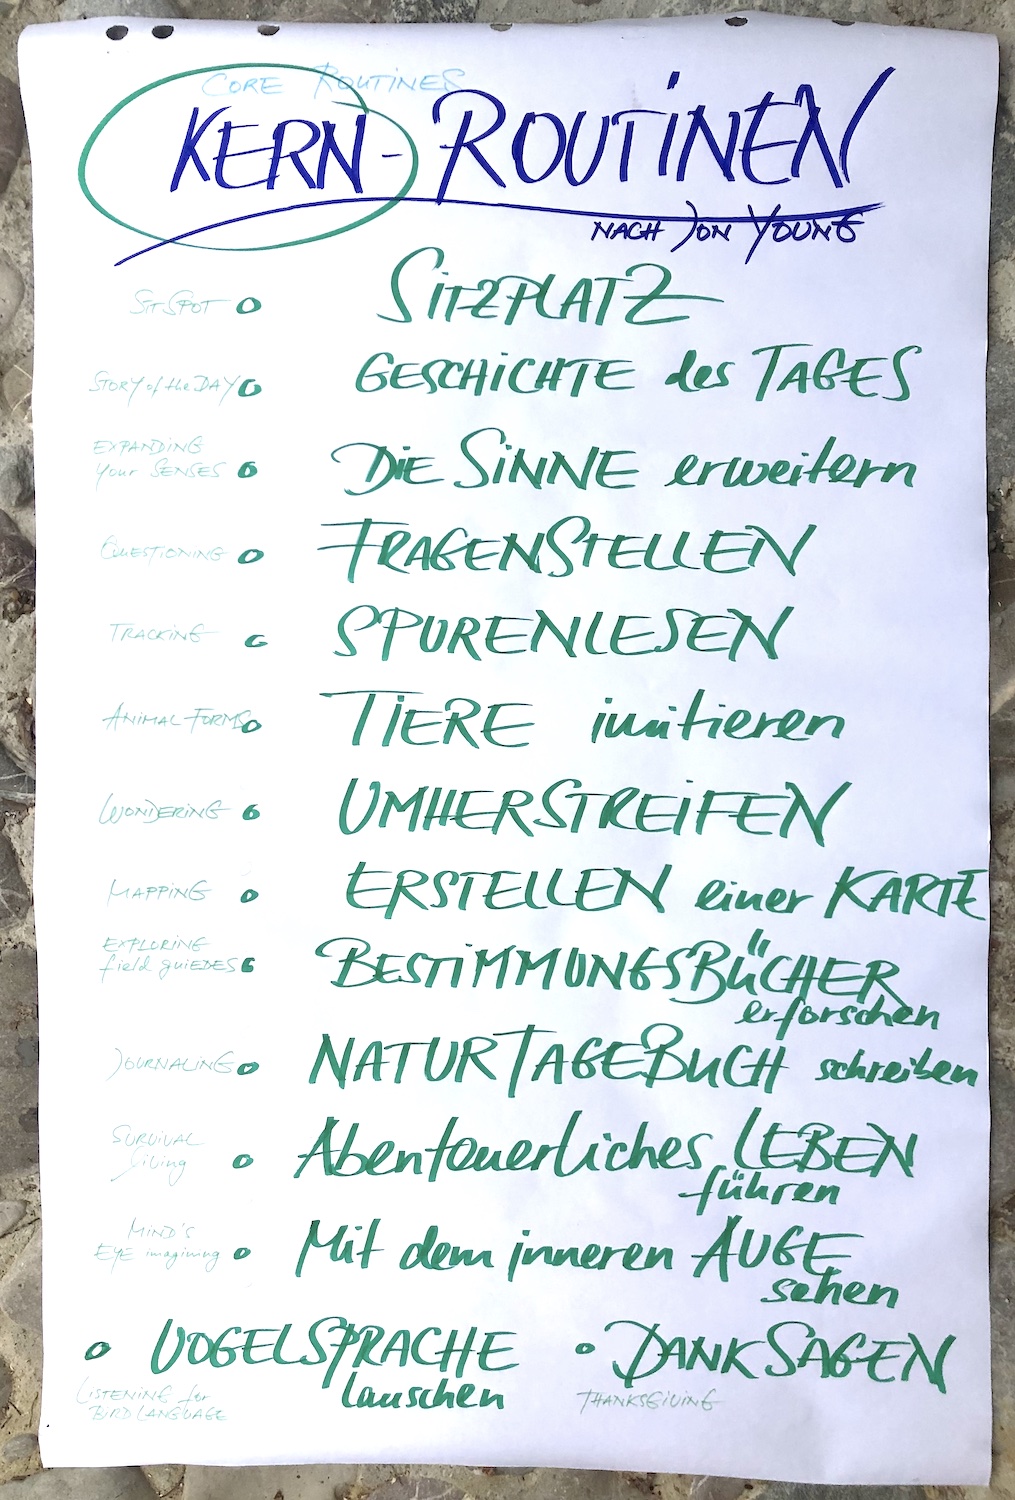 CORE ROUTINES
KERN-ROUTINEN
NACH JON YOUNG
SIT SPOT o SITZPLATZ
STORY of the DAY o GESCHICHTE des TAGES
EXPANDING
your SENSES o DIE SINNE erweitern
QUESTIONING o FRAGENSTELLEN
TRACKING o SPURENLESEN
ANIMAL FORMS o TIERE imitieren
WONDERING o UMHERSTREIFEN
MAPPING o ERSTELLEN einer KARTE
EXPLORING
field guiEDES o BESTIMMUNGSBÜCHER
erforschen
JOURNALING o NATURTAGEBUCH schreiben
SURVIVAL
living o Abenteuerliches LEBEN
führen
MIND'S
EYE imagining o Mit dem inneren AUGE
sehen
o VOGELSPRACHE o DANKSAGEN
lauschen
LISTENING for
BIRD LANGUAGE
THANKSGIVING